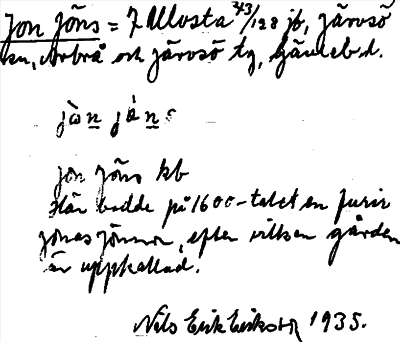 Jon Jöns = 7 Ullosta 43/128 jb, Järvsö
sn, Arbrå och Järvsö tg, Gävleb.l.
jòn jȧns
Jon Jöns kb
Här bodde på 1600-talet en furir
Jonas Jönner, efter vilken gården
är uppkallad.
Nils Erik Eriksson 1935.